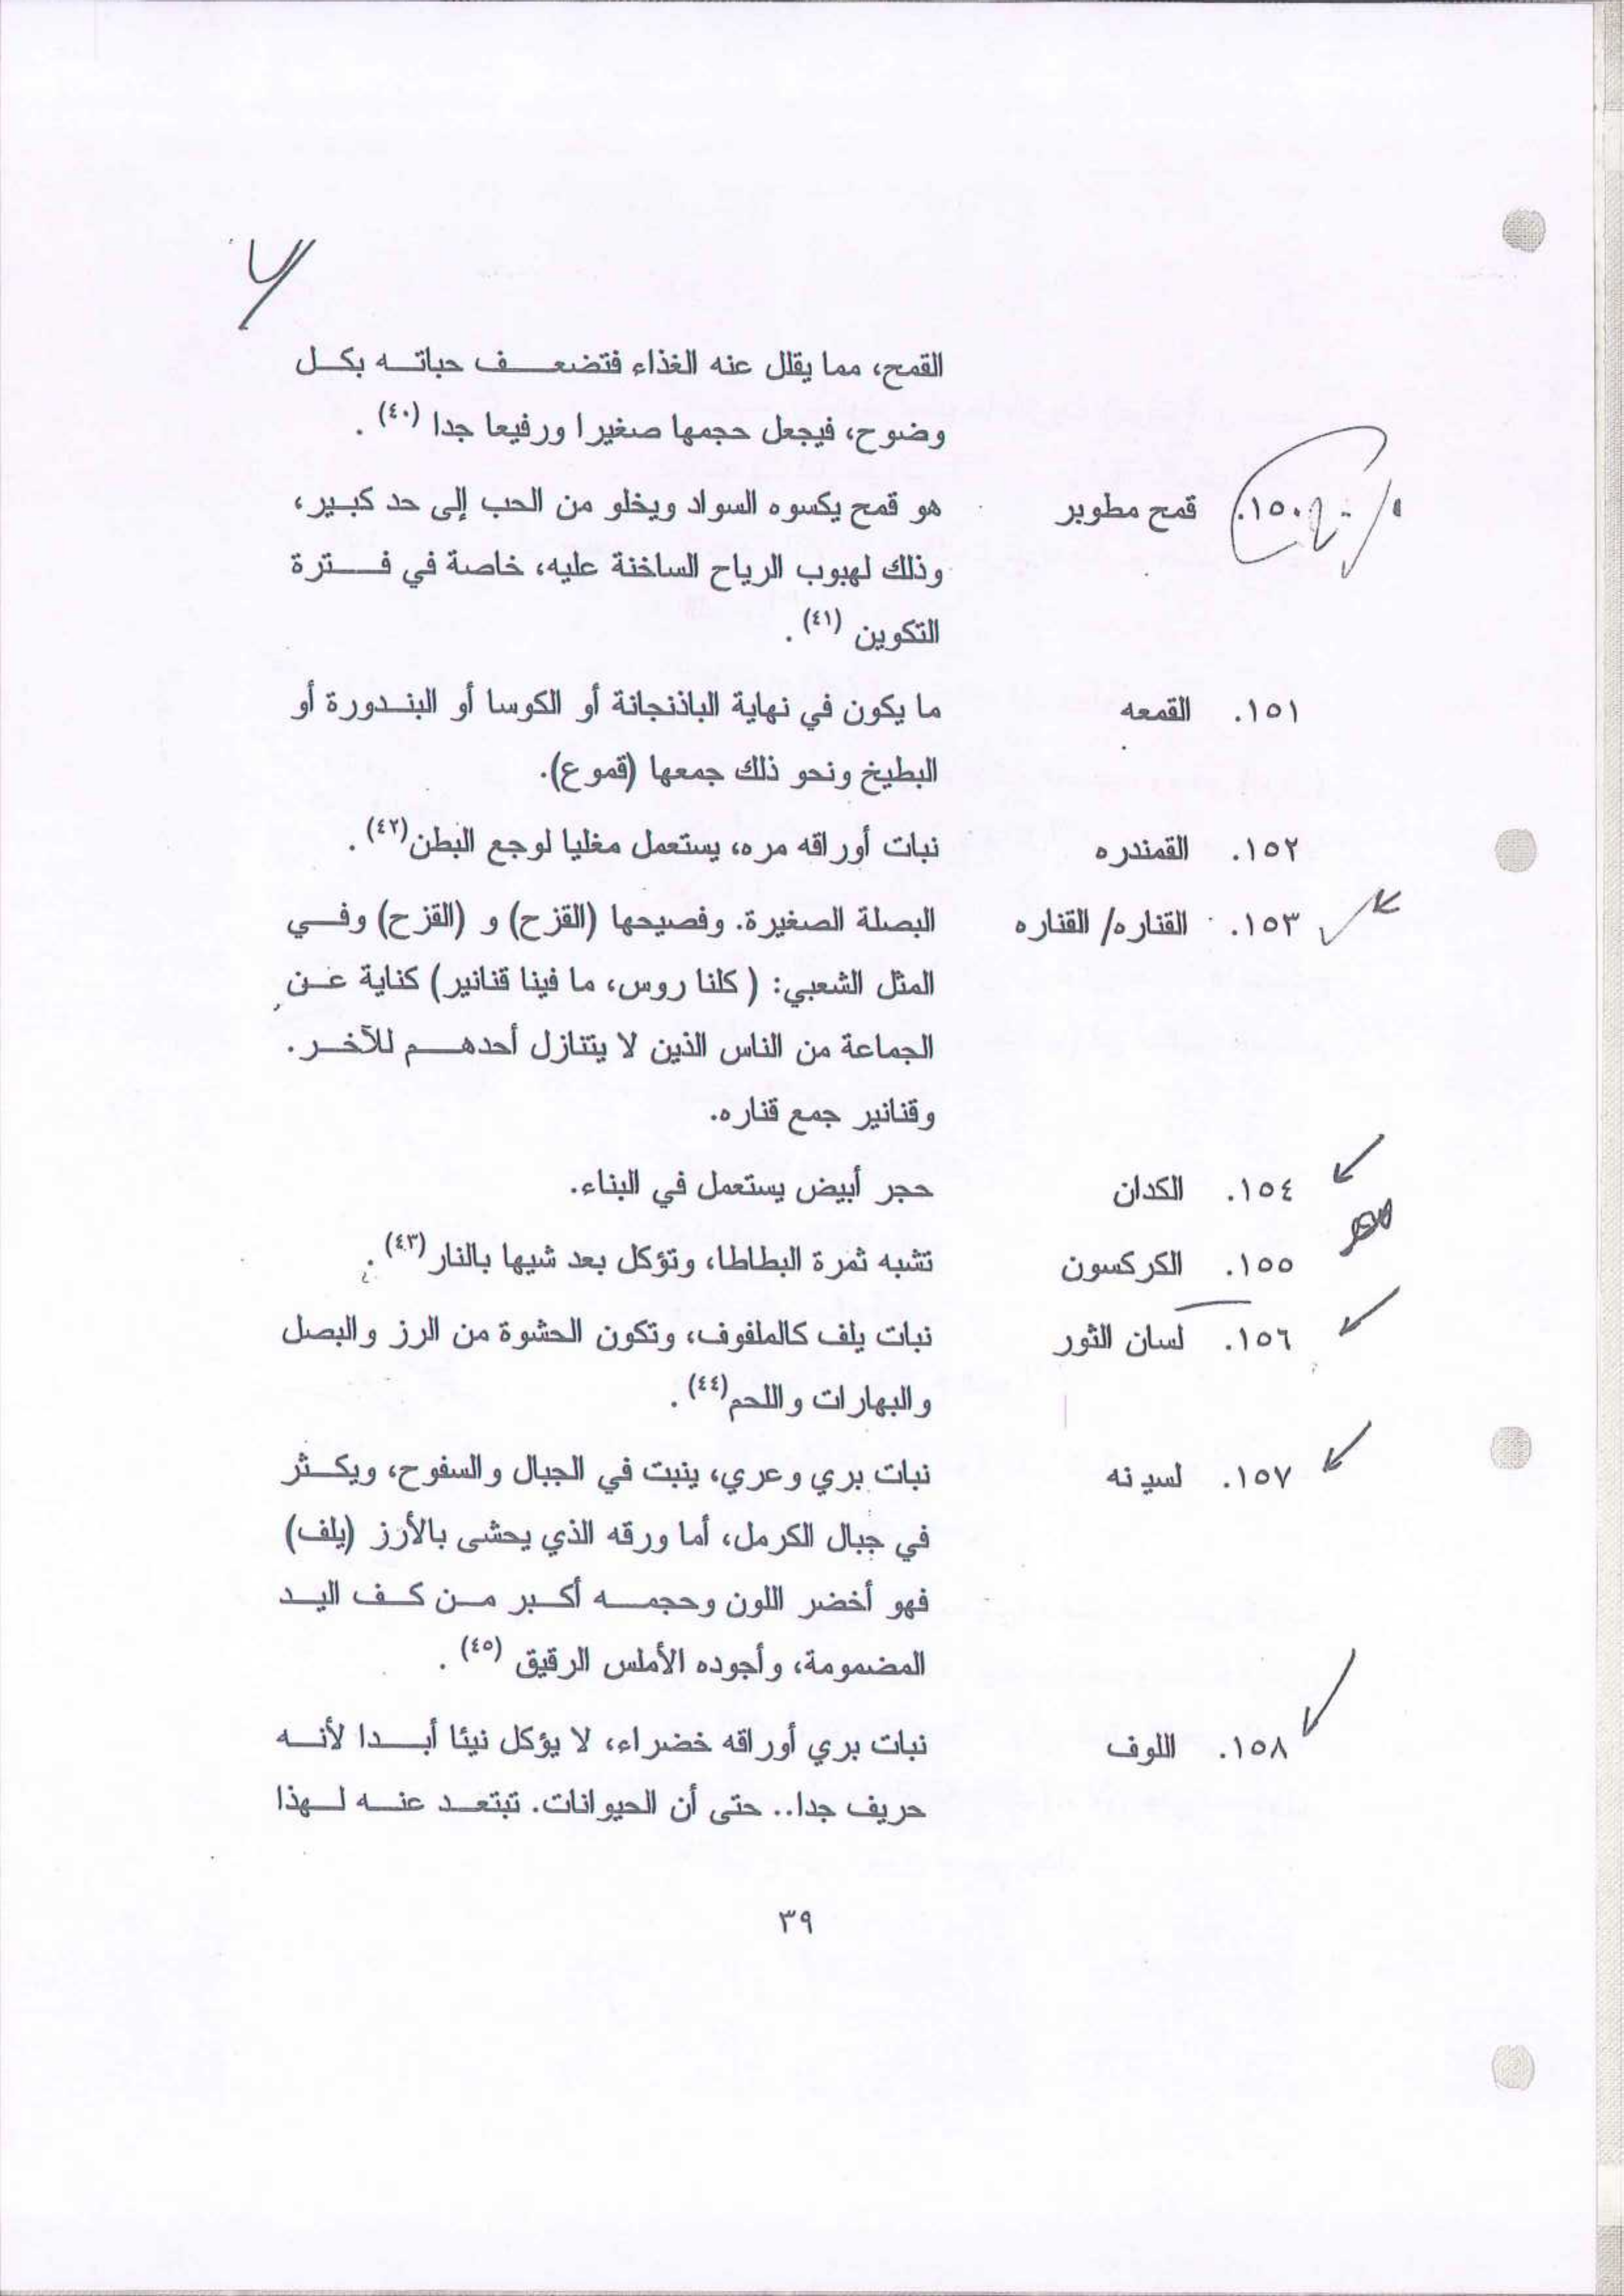 القمح، مما يقلل عنه الغذاء فتضعف حباته بكل
وضوح، فيجعل حجمها صغيرا ورفيعا جدا (٤٠) .
١٥٠. قمح مطوبر هو قمح يكسوه السواد ويخلو من الحب إلى حد كبير،
وذلك لهبوب الرياح الساخنة عليه، خاصة في فترة
التكوين (٤١) .
١٥١. القمعه ما يكون في نهاية الباذنجانة أو الكوسا أو البندورة أو
البطيخ ونحو ذلك جمعها (قموع).
١٥٢. القمندره نبات أوراقه مره، يستعمل مغليا لوجع البطن (٤٢) .
١٥٣. القناره/ القناره البصلة الصغيرة. وفصيحها (القزح) و (القزح) وفي
المثل الشعبي: ( كلنا روس، ما فينا قنانير) كناية عن
الجماعة من الناس الذين لا يتنازل أحدهم للآخر.
وقنانير جمع قناره.
١٥٤. الكدان حجر أبيض يستعمل في البناء.
١٥٥. الكركسون تشبه ثمرة البطاطا، وتؤكل بعد شيها بالنار (٤٣) .
١٥٦. لسان الثور نبات يلف كالملفوف، وتكون الحشوة من الرز والبصل
والبهارات واللحم (٤٤) .
١٥٧. لسينه نبات بري وعري، ينبت في الجبال والسفوح، ويكثر
في جبال الكرمل، أما ورقه الذي يحشى بالأرز (يلف)
فهو أخضر اللون وحجمه أكبر من كف اليد
المضمومة، وأجوده الأملس الرقيق (٤٥) .
١٥٨. اللوف نبات بري أوراقه خضراء، لا يؤكل نيئا أبدا لأنه
حريف جدا.. حتى أن الحيوانات. تبتعد عنه لهذا
٣٩